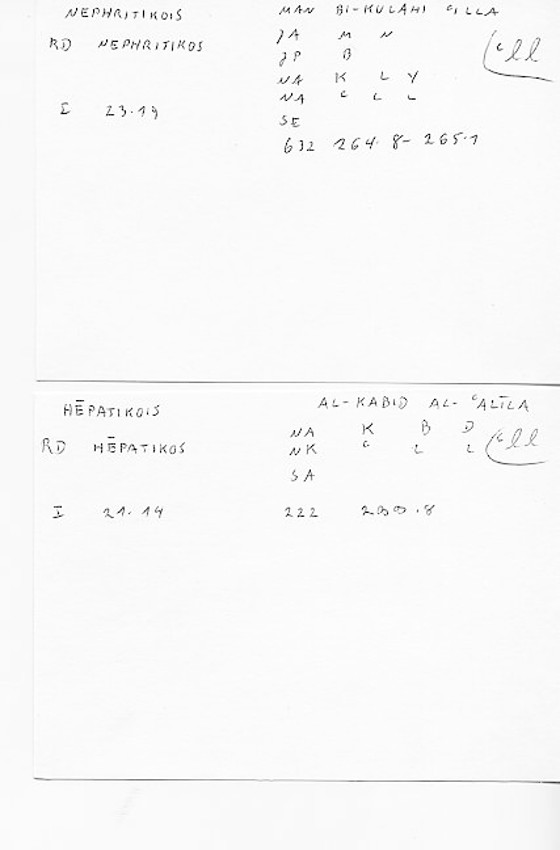 NEPHRITIKOIS MAN BI-KULĀHI ʿILLA
RD NEPHRITIKOS JA M N
JP B
NA K L Y
NA ʿ L L
I 23.19 SE
632 264.8-265.1
ʿll
HĒPATIKOIS AL-KABID AL-ʿALĪLA
RD HĒPATIKOS NA K B D
NK ʿ L L
ʿll
SA
I 21.14 222 200.8